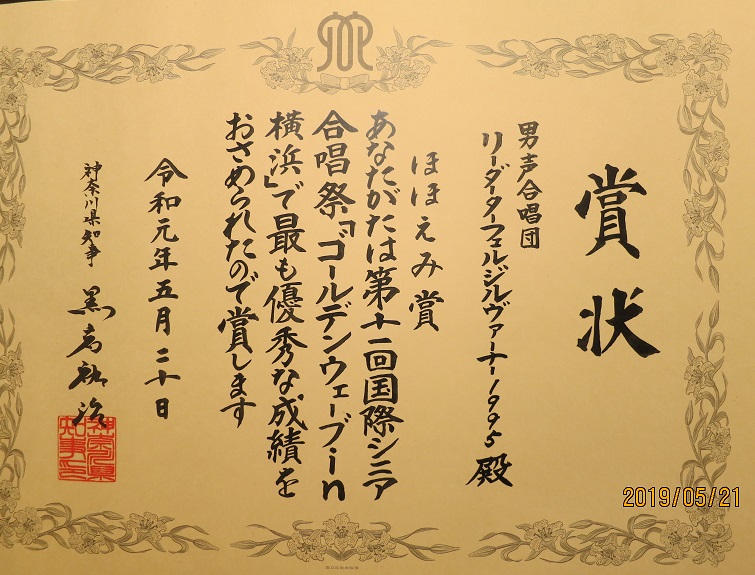 賞状
男声合唱団
リーダーターフェルジルヴァーナー1995 殿
ほほえみ賞
あなたがたは第十一回国際シニア
合唱祭「ゴールデンウェーブin
横浜」で最も優秀な成績を
おさめられたので賞します
令和元年五月二十日
神奈川県知事 黒岩祐治
神奈川県知事之印
2019/05/21